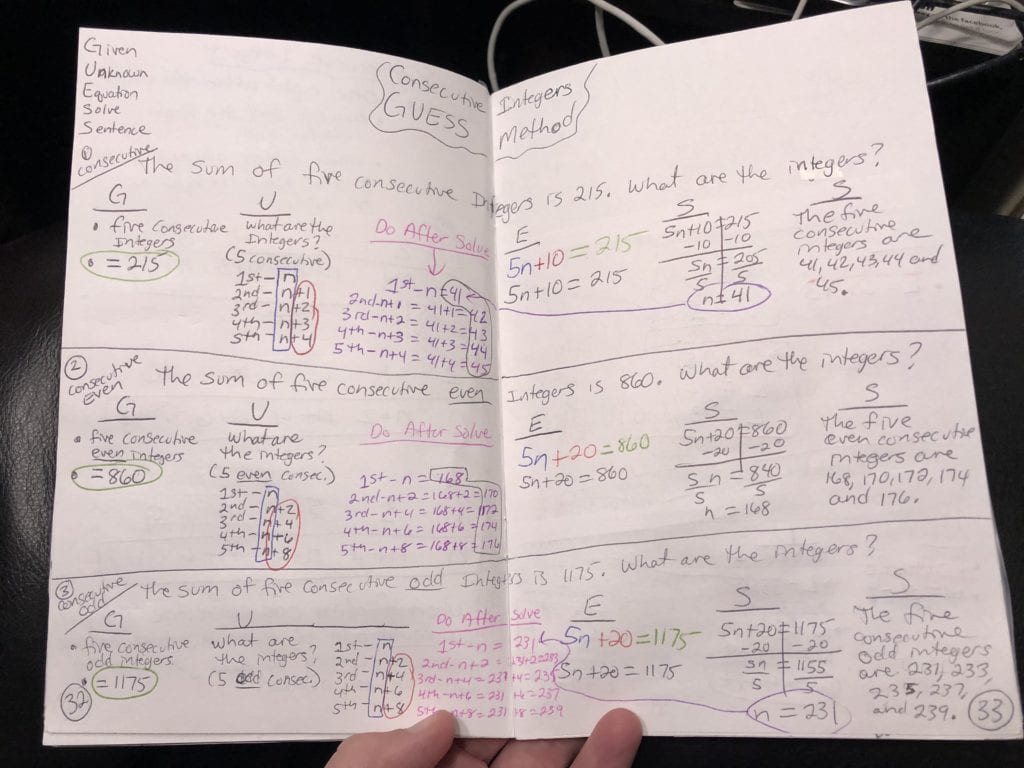 the facebook.
Given
Unknown
Equation
Solve
Sentence
Consecutive Integers
GUESS Method
① consecutive
The sum of five consecutive Integers is 215. What are the integers?
G
• five consecutive
Integers
• = 215
U
what are the
Integers?
(5 consecutive)
1st - n
2nd - n+1
3rd - n+2
4th - n+3
5th - n+4
Do After Solve
1st - n = 41
2nd - n+1 = 41+1 = 42
3rd - n+2 = 41+2 = 43
4th - n+3 = 41+3 = 44
5th - n+4 = 41+4 = 45
E
5n+10 = 215
5n+10 = 215
S
5n+10 = 215
-10 -10
5n = 205
5 5
n = 41
S
The five
consecutive
integers are
41, 42, 43, 44 and
45.
② consecutive
even
The sum of five consecutive even Integers is 860. What are the integers?
G
• five consecutive
even integers
• = 860
U
what are
the integers?
(5 even consec.)
1st - n
2nd - n+2
3rd - n+4
4th - n+6
5th - n+8
Do After Solve
1st - n = 168
2nd - n+2 = 168+2 = 170
3rd - n+4 = 168+4 = 172
4th - n+6 = 168+6 = 174
5th - n+8 = 168+8 = 176
E
5n+20 = 860
5n+20 = 860
S
5n+20 = 860
-20 -20
5n = 840
5 5
n = 168
S
The five
even consecutive
integers are
168, 170, 172, 174
and 176.
③ consecutive
odd
The sum of five consecutive odd Integers is 1175. What are the integers?
G
• five consecutive
odd integers
• = 1175
U
what are
the integers?
(5 odd consec)
1st - n
2nd - n+2
3rd - n+4
4th - n+6
5th - n+8
Do After Solve
1st - n = 231
2nd - n+2 = 231+2=233
3rd - n+4 = 231+4 = 235
4th - n+6 = 231+6 = 237
5th - n+8 = 231+8 = 239
E
5n+20 = 1175
5n+20 = 1175
S
5n+20 = 1175
-20 -20
5n = 1155
5 5
n = 231
S
The five
consecutive
odd integers
are 231, 233,
235, 237,
and 239.
32
33